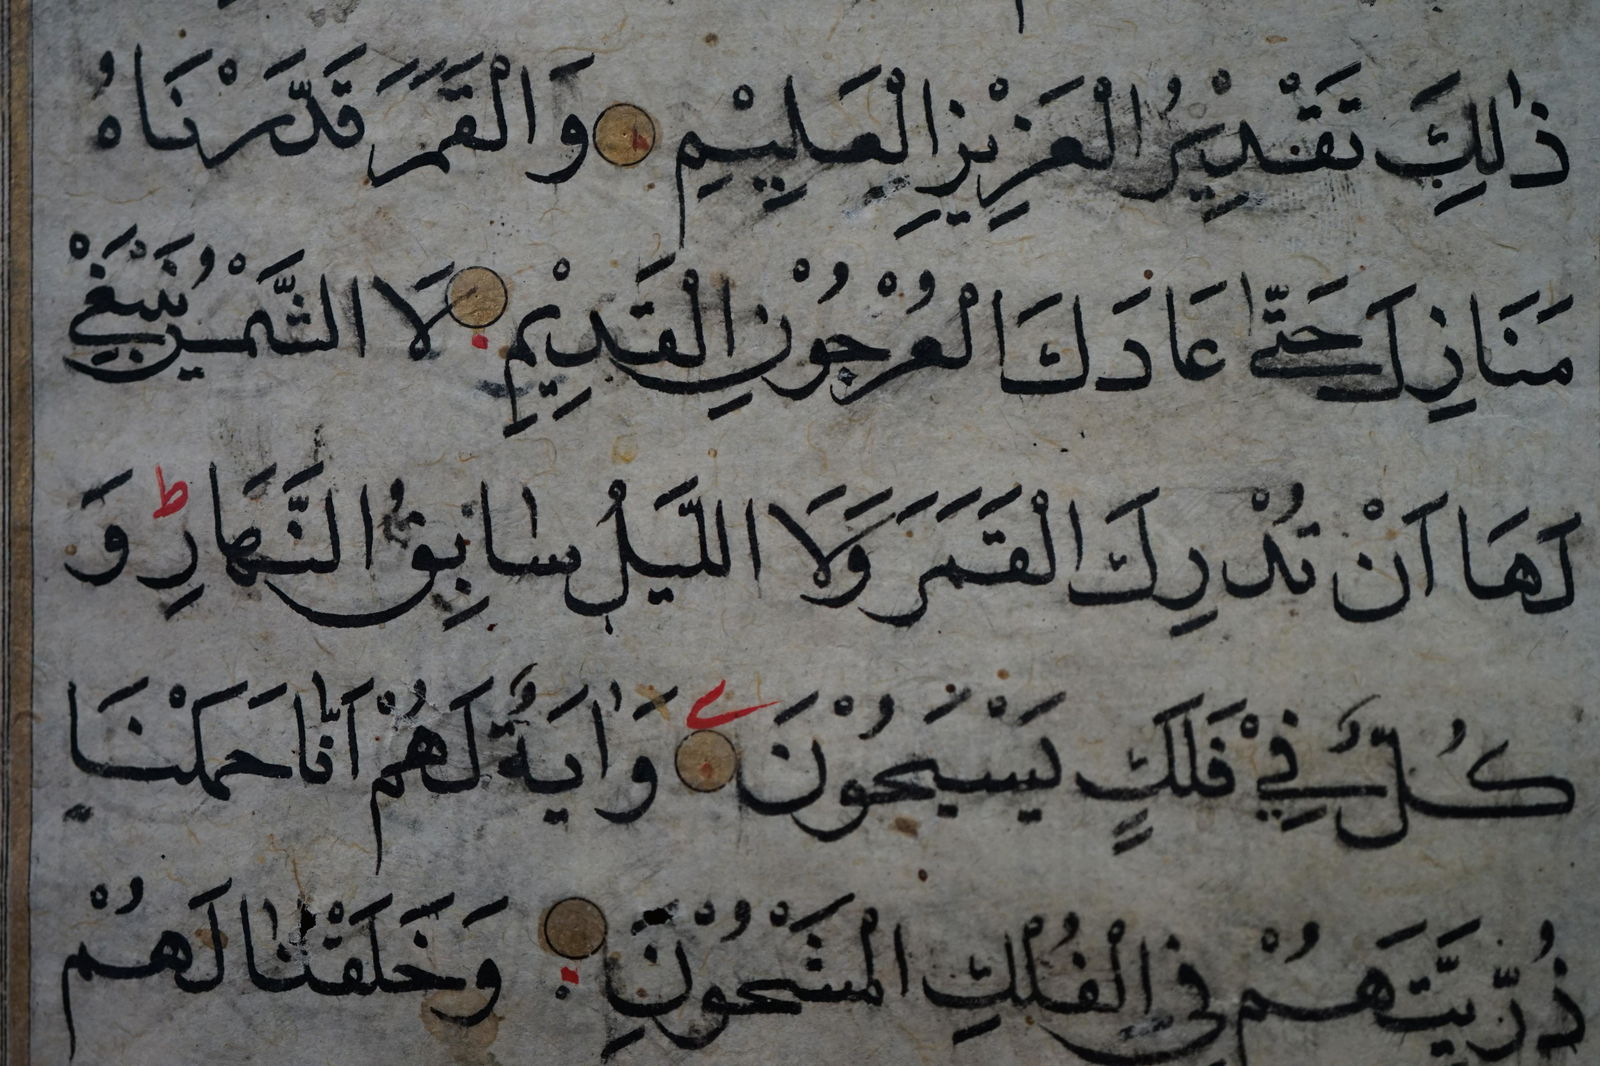 ذٰلِكَ تَقْدِيْرُ الْعَزِيْزِ الْعَلِيْمِ وَالْقَمَرَ قَدَّرْنَاهُ
مَنَازِلَ حَتّٰى عَادَ كَالْعُرْجُوْنِ الْقَدِيْمِ لَا الشَّمْسُ يَنْبَغِيْ
لَهَا اَنْ تُدْرِكَ الْقَمَرَ وَلَا اللَّيْلُ سٰابِقُ النَّهَارِ ط وَ
كُلٌّ فِيْ فَلَكٍ يَسْبَحُوْنَ وَاٰيَةٌ لَهُمْ اَنّٰا حَمَلْنَا
ذُرِّيَّتَهُمْ فِي الْفُلْكِ الْمَشْحُوْنِ وَخَلَقْنٰا لَهُمْ